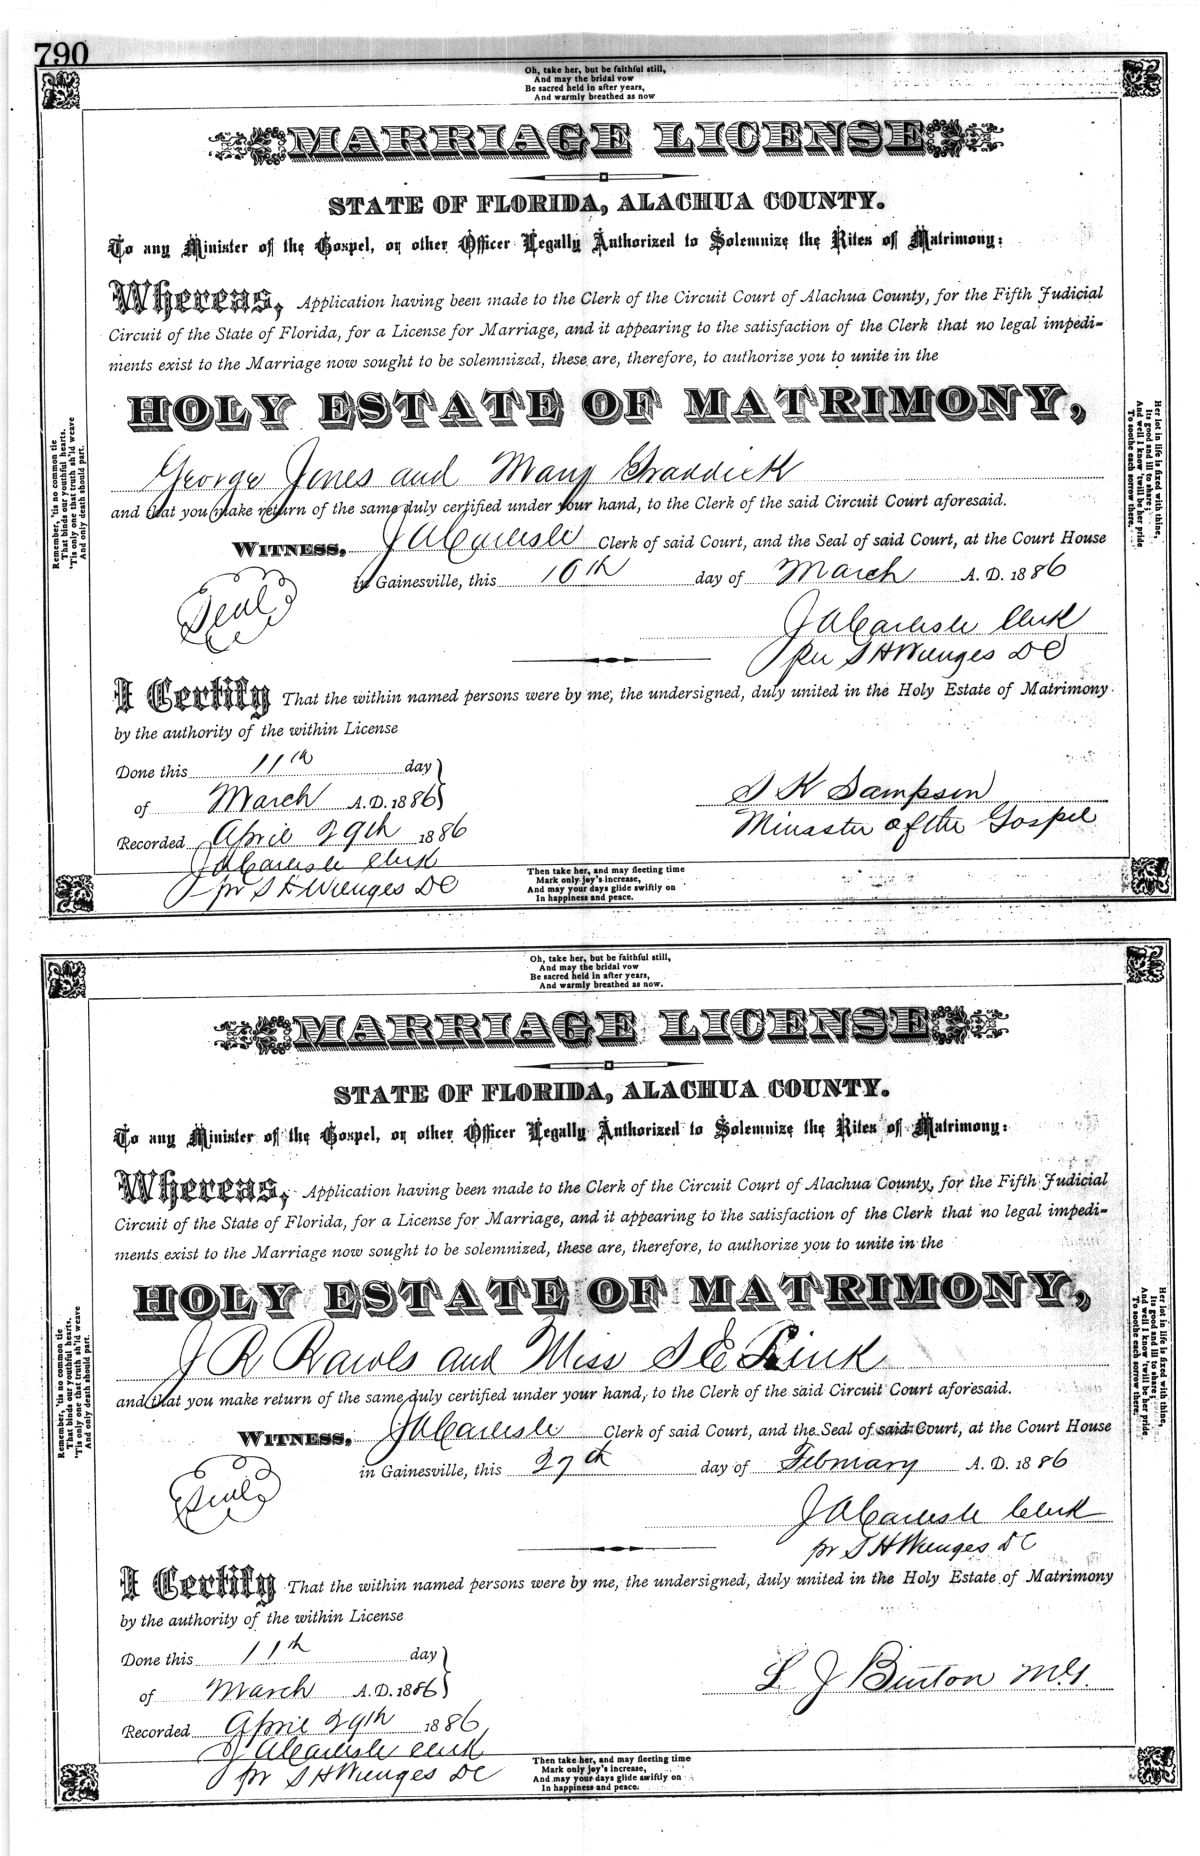 790
Oh, take her, but be faithful still,
And may the bridal vow
Be sacred held in after years,
And warmly breathed as now
MARRIAGE LICENSE
STATE OF FLORIDA, ALACHUA COUNTY.
To any Minister of the Gospel, or other Officer Legally Authorized to Solemnize the Rites of Matrimony:
Whereas, Application having been made to the Clerk of the Circuit Court of Alachua County, for the Fifth Judicial
Circuit of the State of Florida, for a License for Marriage, and it appearing to the satisfaction of the Clerk that no legal impedi-
ments exist to the Marriage now sought to be solemnized, these are, therefore, to authorize you to unite in the
HOLY ESTATE OF MATRIMONY,
George Jones and Mary Graddick
and that you make return of the same duly certified under your hand, to the Clerk of the said Circuit Court aforesaid.
WITNESS, J A Carlisle Clerk of said Court, and the Seal of said Court, at the Court House
in Gainesville, this 10th day of March A. D. 1886
Seal
J A Carlisle Clerk
per S H Wienges DC
I Certify That the within named persons were by me, the undersigned, duly united in the Holy Estate of Matrimony
by the authority of the within License
Done this 11th day
of March A. D. 1886
S K Sampson
Minaster of the Gospel
Recorded April 29th 1886
J A Carlisle Clerk
pr S H Wienges DC
Remember, 'tis no common tie
That binds our youthful hearts.
'Tis only one that truth sh'ld weave
And only death should part.
Her lot in life is fixed with thine,
Its good and ill to share;
And well I know 'twill be her pride
To soothe each sorrow there.
Then take her, and may fleeting time
Mark only joy's increase,
And may your days glide swiftly on
In happiness and peace.
Oh, take her, but be faithful still,
And may the bridal vow
Be sacred held in after years,
And warmly breathed as now.
MARRIAGE LICENSE
STATE OF FLORIDA, ALACHUA COUNTY.
To any Minister of the Gospel, or other Officer Legally Authorized to Solemnize the Rites of Matrimony:
Whereas, Application having been made to the Clerk of the Circuit Court of Alachua County, for the Fifth Judicial
Circuit of the State of Florida, for a License for Marriage, and it appearing to the satisfaction of the Clerk that no legal impedi-
ments exist to the Marriage now sought to be solemnized, these are, therefore, to authorize you to unite in the
HOLY ESTATE OF MATRIMONY,
J R Rawls and Miss S E
and that you make return of the same duly certified under your hand, to the Clerk of the said Circuit Court aforesaid.
WITNESS, J A Carlisle Clerk of said Court, and the Seal of said Court, at the Court House
in Gainesville, this 27th day of February A. D. 1886
Seal
J A Carlisle Clerk
pr S H Wienges DC
I Certify That the within named persons were by me, the undersigned, duly united in the Holy Estate of Matrimony
by the authority of the within License
Done this 11th day
of March A. D. 1886
L J Burton M.G.
Recorded April 29th 1886
J A Carlisle Clerk
pr S H Wienges DC
Remember, 'tis no common tie
That binds our youthful hearts.
'Tis only one that truth sh'ld weave
And only death should part.
Her lot in life is fixed with thine,
Its good and ill to share;
And well I know 'twill be her pride
To soothe each sorrow there.
Then take her, and may fleeting time
Mark only joy's increase,
And may your days glide swiftly on
In happiness and peace.